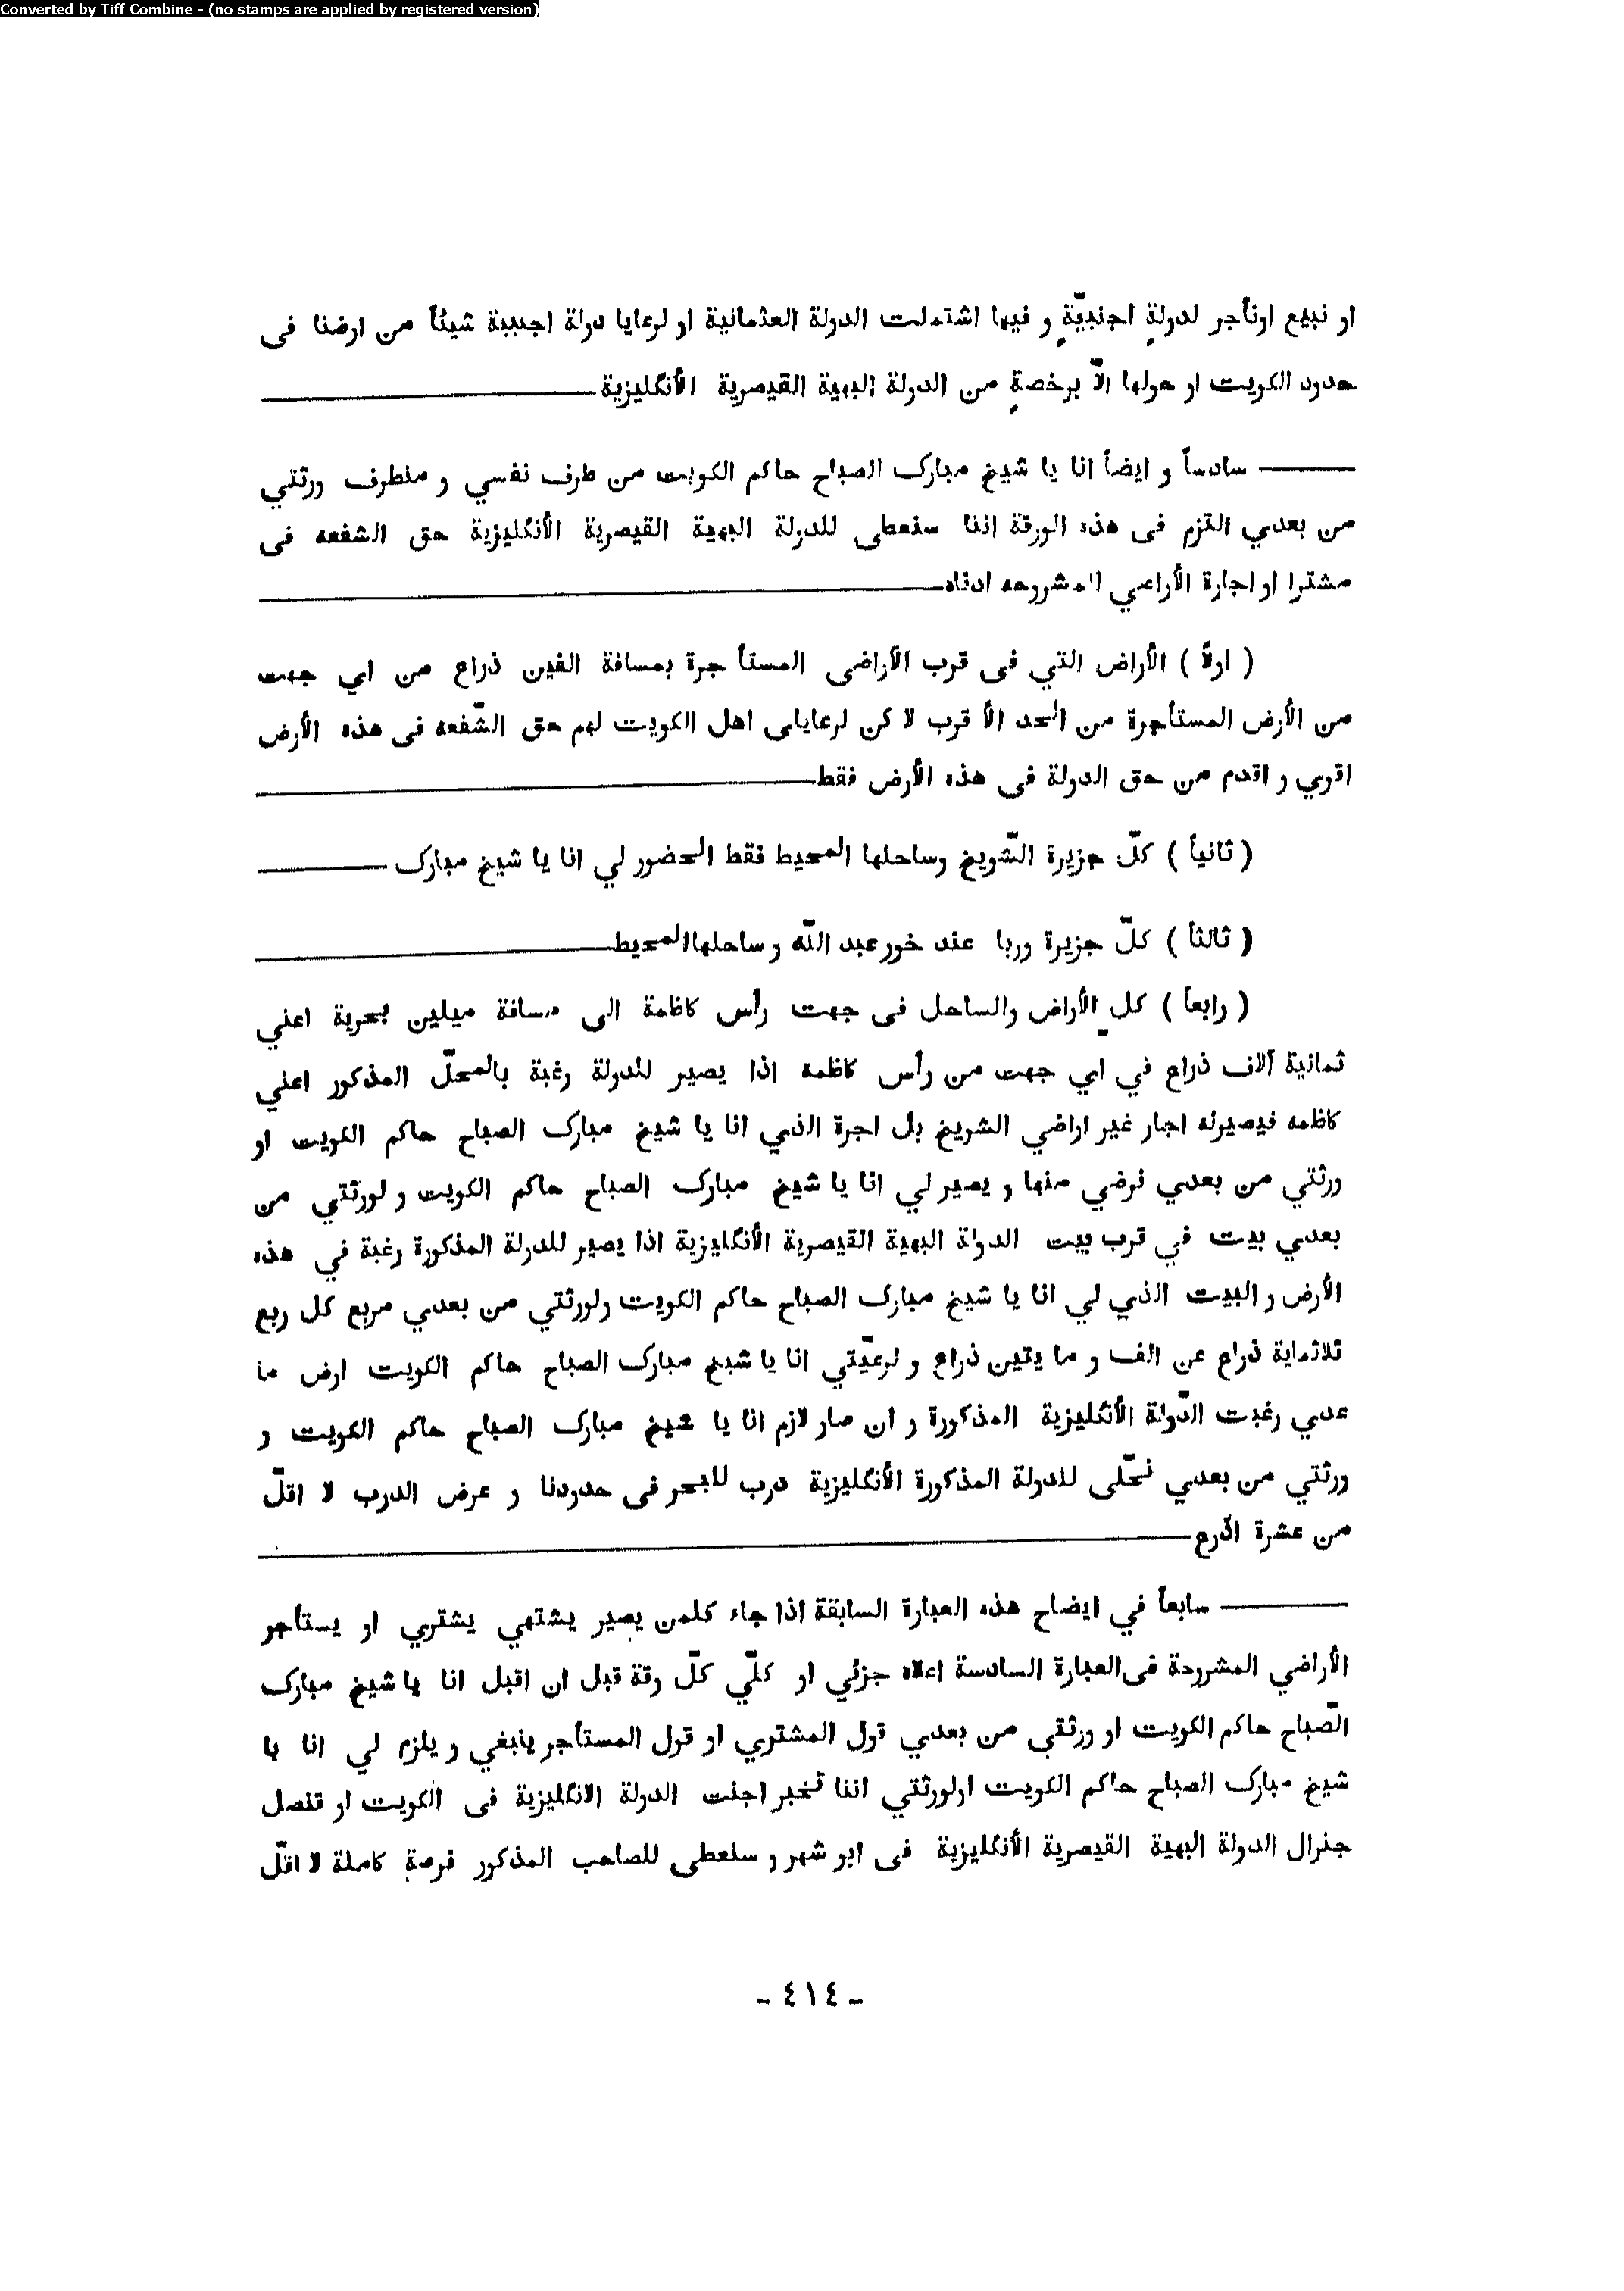 Converted by Tiff Combine - (no stamps are applied by registered version)
او نبيع اونأجر لدولةٍ اجنبيّةٍ و فيها اشتملت الدولة العثمانية او لرعايا دولة اجنبية شيئاً من ارضنا فى
حدود الكويت او حولها الاّ برخصةٍ من الدولة البهية القيصرية الأنكليزية
سادساً و ايضاً انا يا شيخ مبارك الصباح حاكم الكويت من طرف نفسي و منطرف ورثتي
من بعدي التزم فى هذه الورقة اننا سنعطى للدولة البهية القيصرية الأنكليزية حق الشفعه فى
مشترا او اجارة الأراضي المشروحه ادناه
( اولاً ) الأراض التي فى قرب الآراضى المستأ جرة بمسافة الفين ذراع من اي جهت
من الأرض المستأجرة من الحد الأ قرب لا كن لرعاياى اهل الكويت لهم حق الشّفعه فى هذه الأرض
اقوي و اقدم من حق الدولة فى هذه الأرض فقط
( ثانياً ) كلّ جزيرة الشّويخ وساحلها المحيط فقط الحضور لي انا يا شيخ مبارك
( ثالثاً ) كلّ جزيرة وربا عند خور عبد اللّه و ساحلها المحيط
( رابعاً ) كلِ الأراض والساحل فى جهت رأس كاظمة الى مسافة ميلين بحرية اعني
ثمانية آلاف ذراع في اي جهت من رأس كاظمه اذا يصير للدولة رغبة بالمحلّ المذكور اعني
كاظمه فيصيرله اجار غير اراضي الشويخ بل اجرة الذي انا يا شيخ مبارك الصباح حاكم الكويت او
ورثتي من بعدي نرضي منها و يصير لي انا يا شيخ مبارك الصباح حاكم الكويت و لورثتي من
بعدي بيت في قرب بيت الدولة البهية القيصرية الأنكليزية اذا يصير للدولة المذكورة رغبة في هذه
الأرض و البيت الذي لي انا يا شيخ مبارك الصباح حاكم الكويت ولورثتي من بعدي مربع كل ربع
ثلاثماية ذراع عن الف و ما يتين ذراع و لرعيّتي انا يا شيخ مبارك الصباح حاكم الكويت ارض ما
عدي رغبت الدّولة الأنكليزية المذكورة و ان صار لازم انا يا شيخ مبارك الصباح حاكم الكويت و
ورثتي من بعدي نخّلى للدولة المذكورة الأنكليزية درب للبحر فى حدودنا و عرض الدرب لا اقلّ
من عشرة اذرع
سابعاً في ايضاح هذه العبارة السابقة اذا جاء كلمن يصير يشتهي يشتري او يستأجر
الأراضي المشروحة فى العبارة السادسة اعلاه جزئي او كلّي كلّ وقة قبل ان اقبل انا يا شيخ مبارك
الصّباح حاكم الكويت او ورثتي من بعدي قول المشتري او قول المستأجر ينبغي و يلزم لي انا يا
شيخ مبارك الصباح حاكم الكويت اولورثتي اننا نخبر اجنت الدولة الانكليزية فى الكويت او قنصل
جنرال الدولة البهية القيصرية الأنكليزية فى ابو شهر و سنعطى للصاحب المذكور فرصةٍ كاملة لا اقلّ
- ٤١٤ -